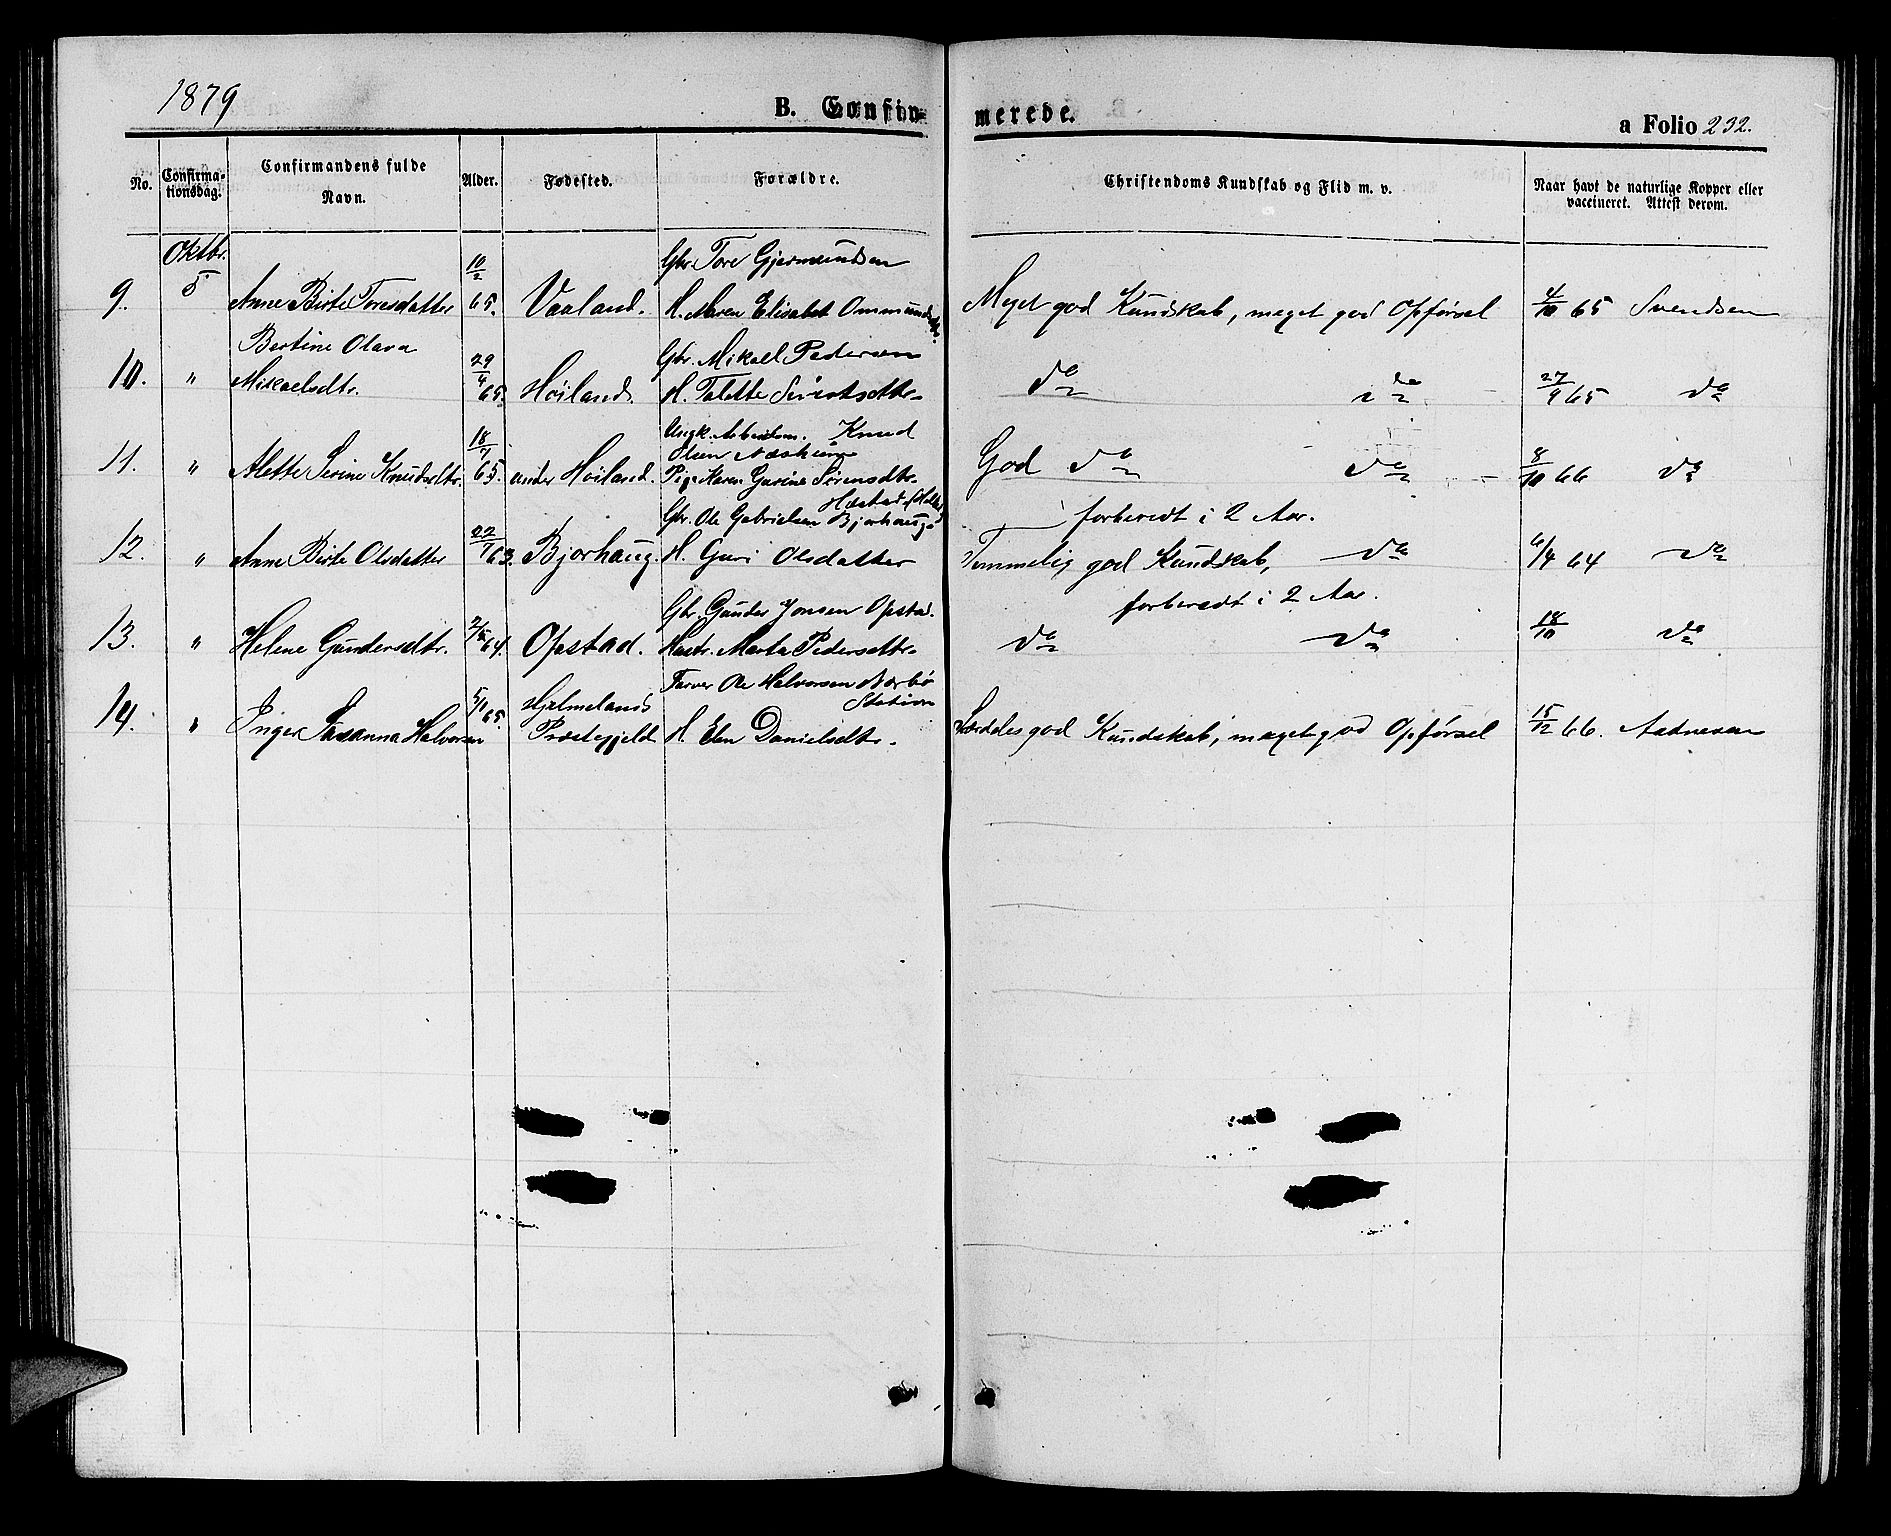 1879
B. Confir-
merede.
a Folio 232.
No.
Confirma-
tionsdag.
Confirmandens fulde
Navn.
Alder.
Fødested.
Forældre.
Christendoms Kundskab og Flid m. v.
Naar havt de naturlige Kopper eller
vaccineret. Attest derom.
Oktbr.
5
9. Anne Birte Toresdatter 10/2 65. Vaaland.
Gbr. Tore Gjermundsen
H. Maren Elisabet Ommundsdtr.
Meget god Kundskab, meget god Opførsel 4/10 65 Svendsen
Bertine Olava
10. " Mikaelsdtr. 29/4 65. Høiland.
Gbr. Mikael Pedersen
H. Talette Sivertsdtr.
do do 27/9 65 do
11. " Alette Serine Knudsdtr. 18/7 65. under Høiland.
Ungk. Knud
Olsen
Pige Karen Gurine Sørensdtr.
God do do 8/10 66 do
forberedt i 2 Aar.
12. " Anne Birte Olsdatter 22/7 63. Bjorhaug.
Gbr. Ole Gabrielsen Bjorhaug
H. Guri Olsdatter
Temmelig god Kundskab, do 6/4 64 do
forberedt i 2 Aar.
13. " Helene Gundersdtr. 2/5 64. Opstad.
Gbr. Gunder Jonsen Opstad.
Hustr. Marta Pedersdtr.
do do 18/10 do
14. " Inger Susanna Halvorsen 5/11 65. Hjelmelands
Præstegjeld
Farver Ole Halvorsen Nærbø
Station
H. Elen Danielsdtr.
Særdeles god Kundskab, meget god Opførsel 15/12 66. Aadnesen